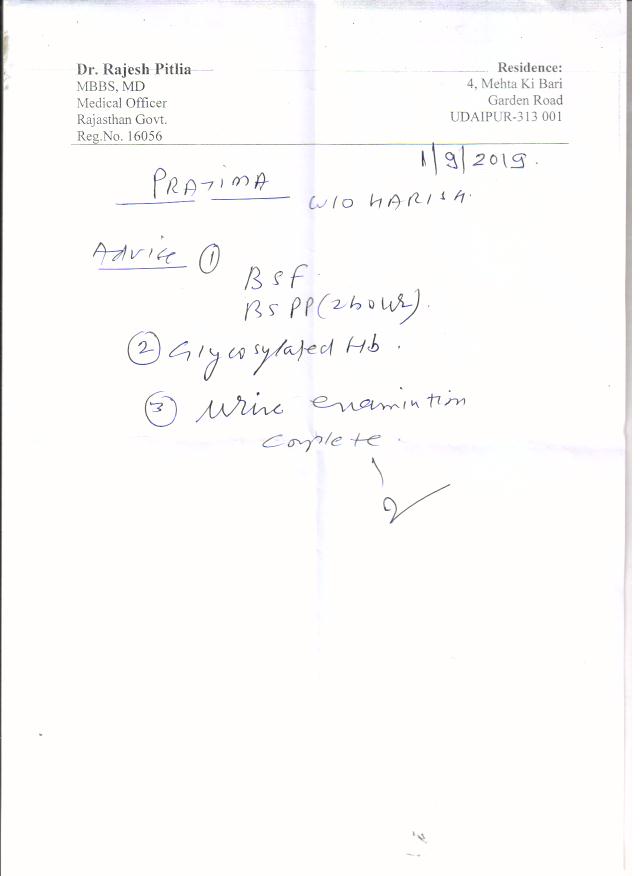 Dr. Rajesh Pitlia
MBBS, MD
Medical Officer
Rajasthan Govt.
Reg.No. 16056
Residence:
4, Mehta Ki Bari
Garden Road
UDAIPUR-313 001
1/9/2019.
PRATIMA
W/O HARISH.
Advice ①
BSF.
BSPP (2hour).
② Glycosylated Hb.
③ Urine examintion
complete.